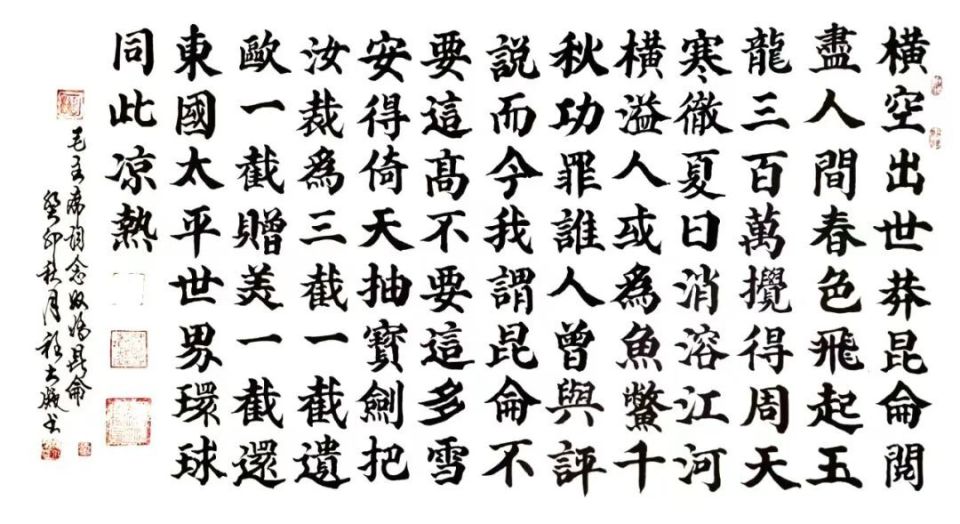 橫空出世莽昆侖閱
盡人間春色飛起玉
龍三百萬攪得周天
寒徹夏日消溶江河
橫溢人或為魚鱉千
秋功罪誰人曾與評
說而今我謂昆侖不
要這高不要這多雪
安得倚天抽寶劍把
汝裁為三截一截遺
歐一截贈美一截還
東國太平世界環球
同此凉熱
毛主席詞念奴嬌昆侖
癸卯秋月